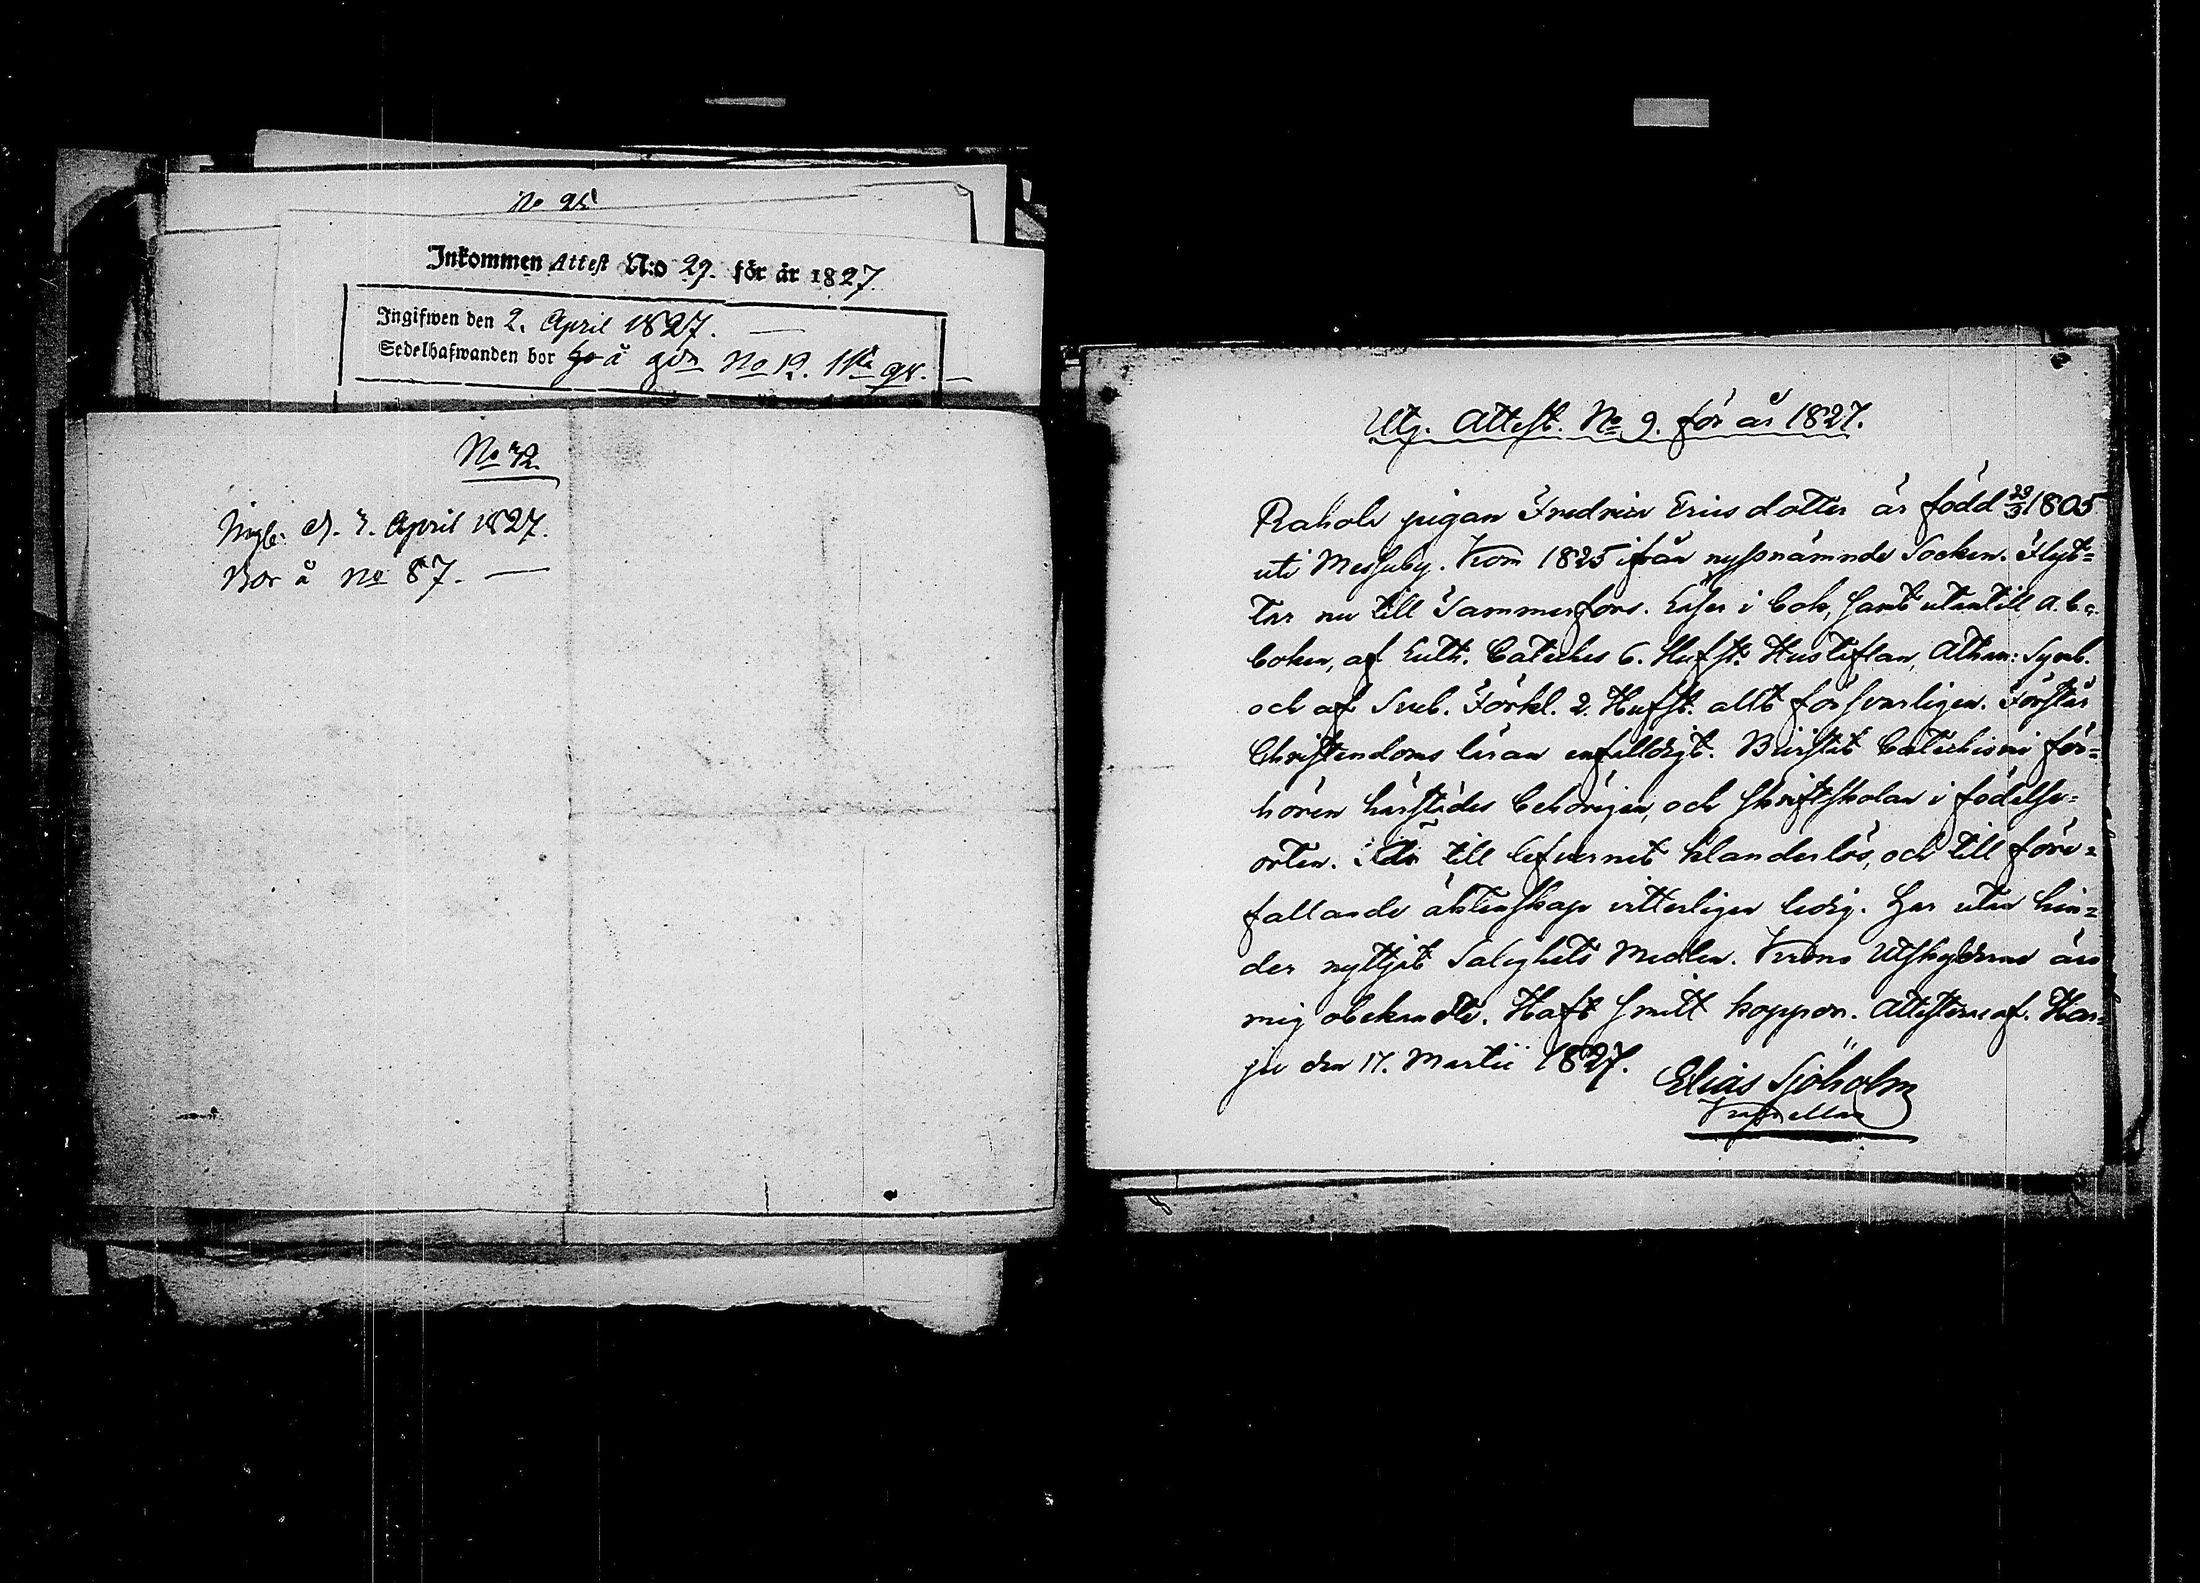 No 25
Inkommen Attest N:o 29. för år 1827
Ingifwen den 2. April 1827.
Sedelhafwanden bor å No 12. 1sta qr.
No 42.
d. 7. April 1827.
Bor å No 87.
Utg. Attest. No 9. för år 1827.
Rahola pigan Fredrica Ericsdotter är född 29/3 1805
uti Messuby. Kom 1825 ifrån nyssnämnde Socken. Flyt-
tar nu till Tammerfors. Läser i bok, samt utantill a.b.c.
boken, af Luth. Cateches 6. Hufst. Hustaflan, Athan: Symb.
och af Sveb. Förkl. 2. Hufst. allt försvarligen. Förstår
Christendoms läran enfalldigt. Bevistat Catechismi för-
hören härstädes behörigen, och skriftskolan i födelse-
orten. till lefvernet klanderlös, och till före-
fallande äktenskap vitterligen ledig. Har utan hin-
der nyttjat Salighets Medlen. Krono Utskylderna äro
mig obekandte. Haft smitt koppor. Attesteras af. Har-
ju den 17. Martii 1827.
Elias Sjöholm
Capellan